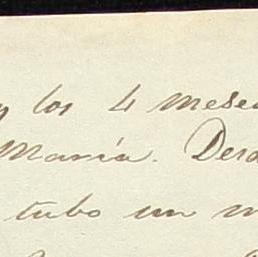 los 4 mese
María. Desd
tubo un m